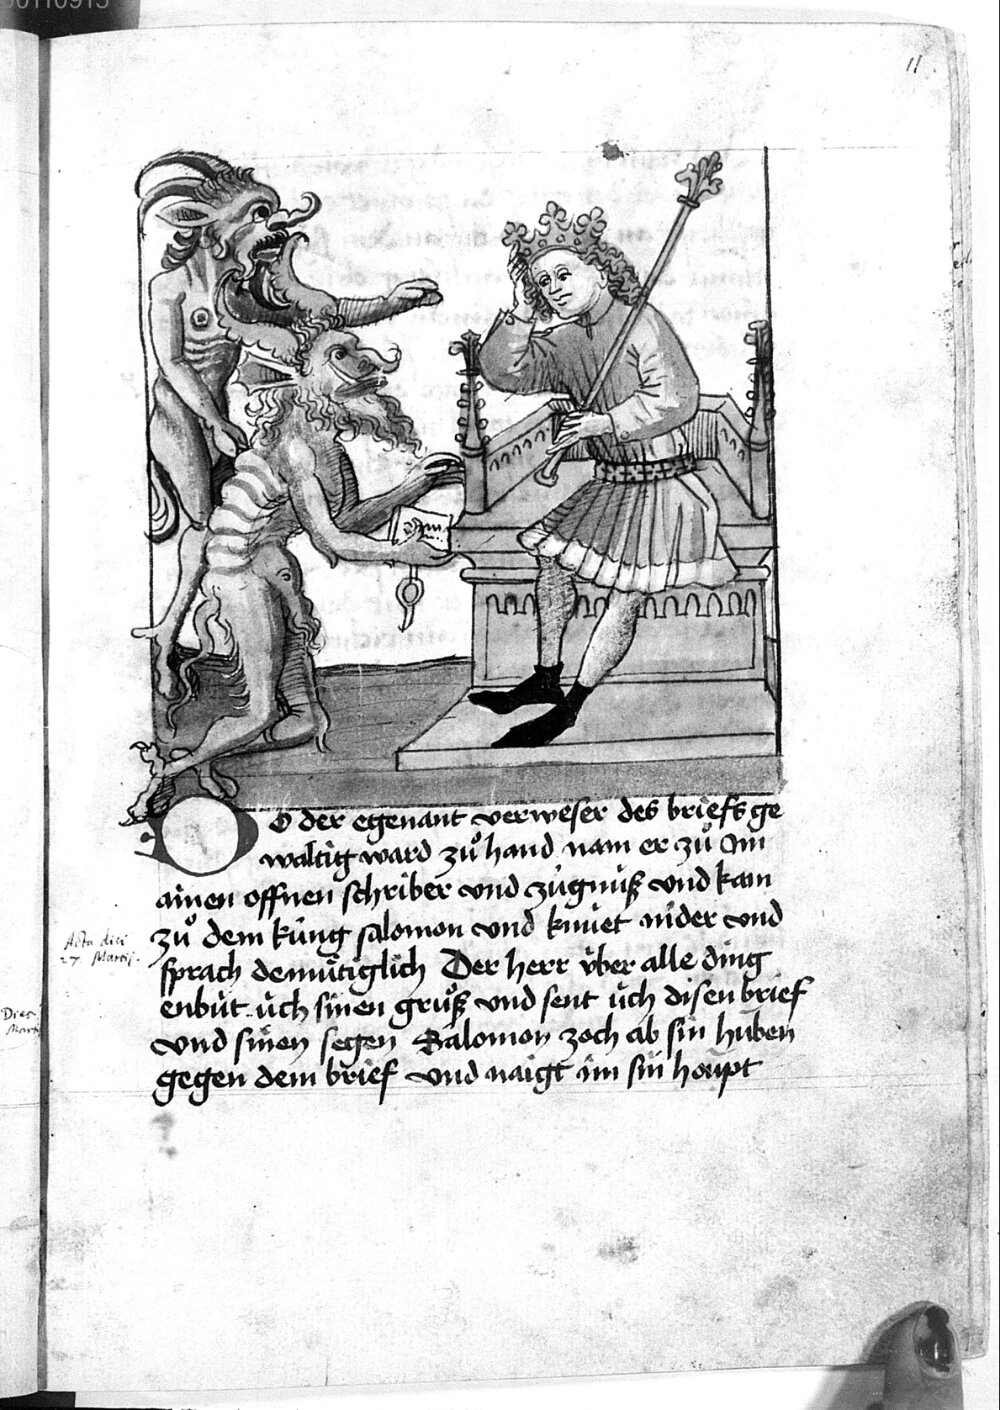 11
DO der egenant verweser des briefs ge
waltig ward zuͦ hand nam er zuͦ im
ainen offnen schriber vnd zügnüß vnd kam
zuͦ dem küng salomon vnd knüet nider vnd
sprach demütiglich Der herr über alle ding
enbüt üch sinen gruͦß vnd sent üch disen brief
vnd sinen segen Salomon zoch ab sin huben
gegen dem brief vnd naigt im sin houpt
Acta diei
27. Martij.
Diei